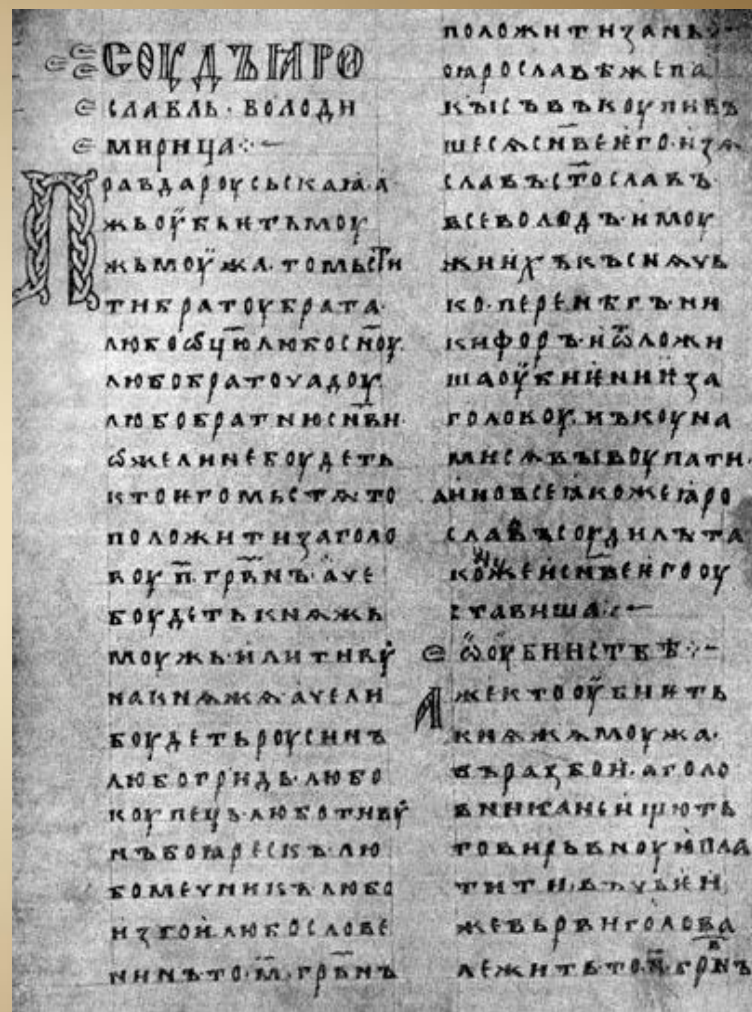 СОУДЪ ꙖРО
СЛАВЛЬ · ВОЛОДИ
МИРИЦА ⁘ ~
ПРАВДАРОУСЬСКАꙖ · А
ЖЬОУБЬѤТЬМОУ
ЖЬМОУЖА · ТОМЬСТИ
ТИБРАТОУБРАТА ·
ЛЮБОѾЦЮЛЮБОСН҃ОУ
ЛЮБОБРАТОУЧАДОУ
ЛЮБОБРАТНЮСН҃ВИ ·
ѠЖЕЛИНЕБОУДЕТЬ
КТОѤГОМЬСТѦТО
ПОЛОЖИТИЗАГОЛО
ВОУ П҃ · ГРВ҃НЪ · АЧЕ
БОУДЕТЬКНѦЖЬ
МОУЖЬ · ИЛИТИВУ
НАКНѦЖѦ · АЧЕЛИ
БОУДЕТЬРОУСИНЪ
ЛЮБОГРИДЬ · ЛЮБО
КОУПЕЦЬ · ЛЮБОТИВУ
НЪБОꙖРЕСКЪ · ЛЮ
БОМЕЧНИКЪ · ЛЮБО
ИЗГОИ · ЛЮБОСЛОВЕ
НИНЪТО · М҃ · ГРВ҃НЪ
ПОЛОЖИТИЗАНЬ ·
ПОꙖРОСЛАВѢЖЕПА
КЫСЪВЪКОУПИВЪ
ШЕСѦСН҃ВЕѤГО · ИЗѦ
СЛАВЪ · СТ҃ОСЛАВЪ ·
ВСЕВОЛОДЪ · ИМОУ
ЖИИХЪКЪСНѦЧЬ
КО · ПЕРЕНѢГЪ · НИ
КИФОРЪ · ИѾЛОЖИ
ШАОУБИѤНИѤЗА
ГОЛОВОУ · НЪКОУНА
МИСѦВЫКОУПАТИ ·
АИНОВСЕꙖКОЖЕꙖРО
СЛАВЪСОУДИЛЪТА
КОЖЕИСН҃ВЕѤГООУ
СТАВИША ⁘ ~
ѾОУБИИСТВѢ ⁘ ~
АЖЕКТООУБИѤТЬ
КНѦЖѦМОУЖА ·
ВЪРАЗБОИ · АГОЛО
ВНИКАНЕИЩЮТЬ
ТОВИРЬВНОУЮПЛА
ТИТИ · ВЪЧЬѤИ
ЖЕВЬРВИГОЛОВА
ЛЕЖИТЬТО · П҃ · ГРВ҃НЪ